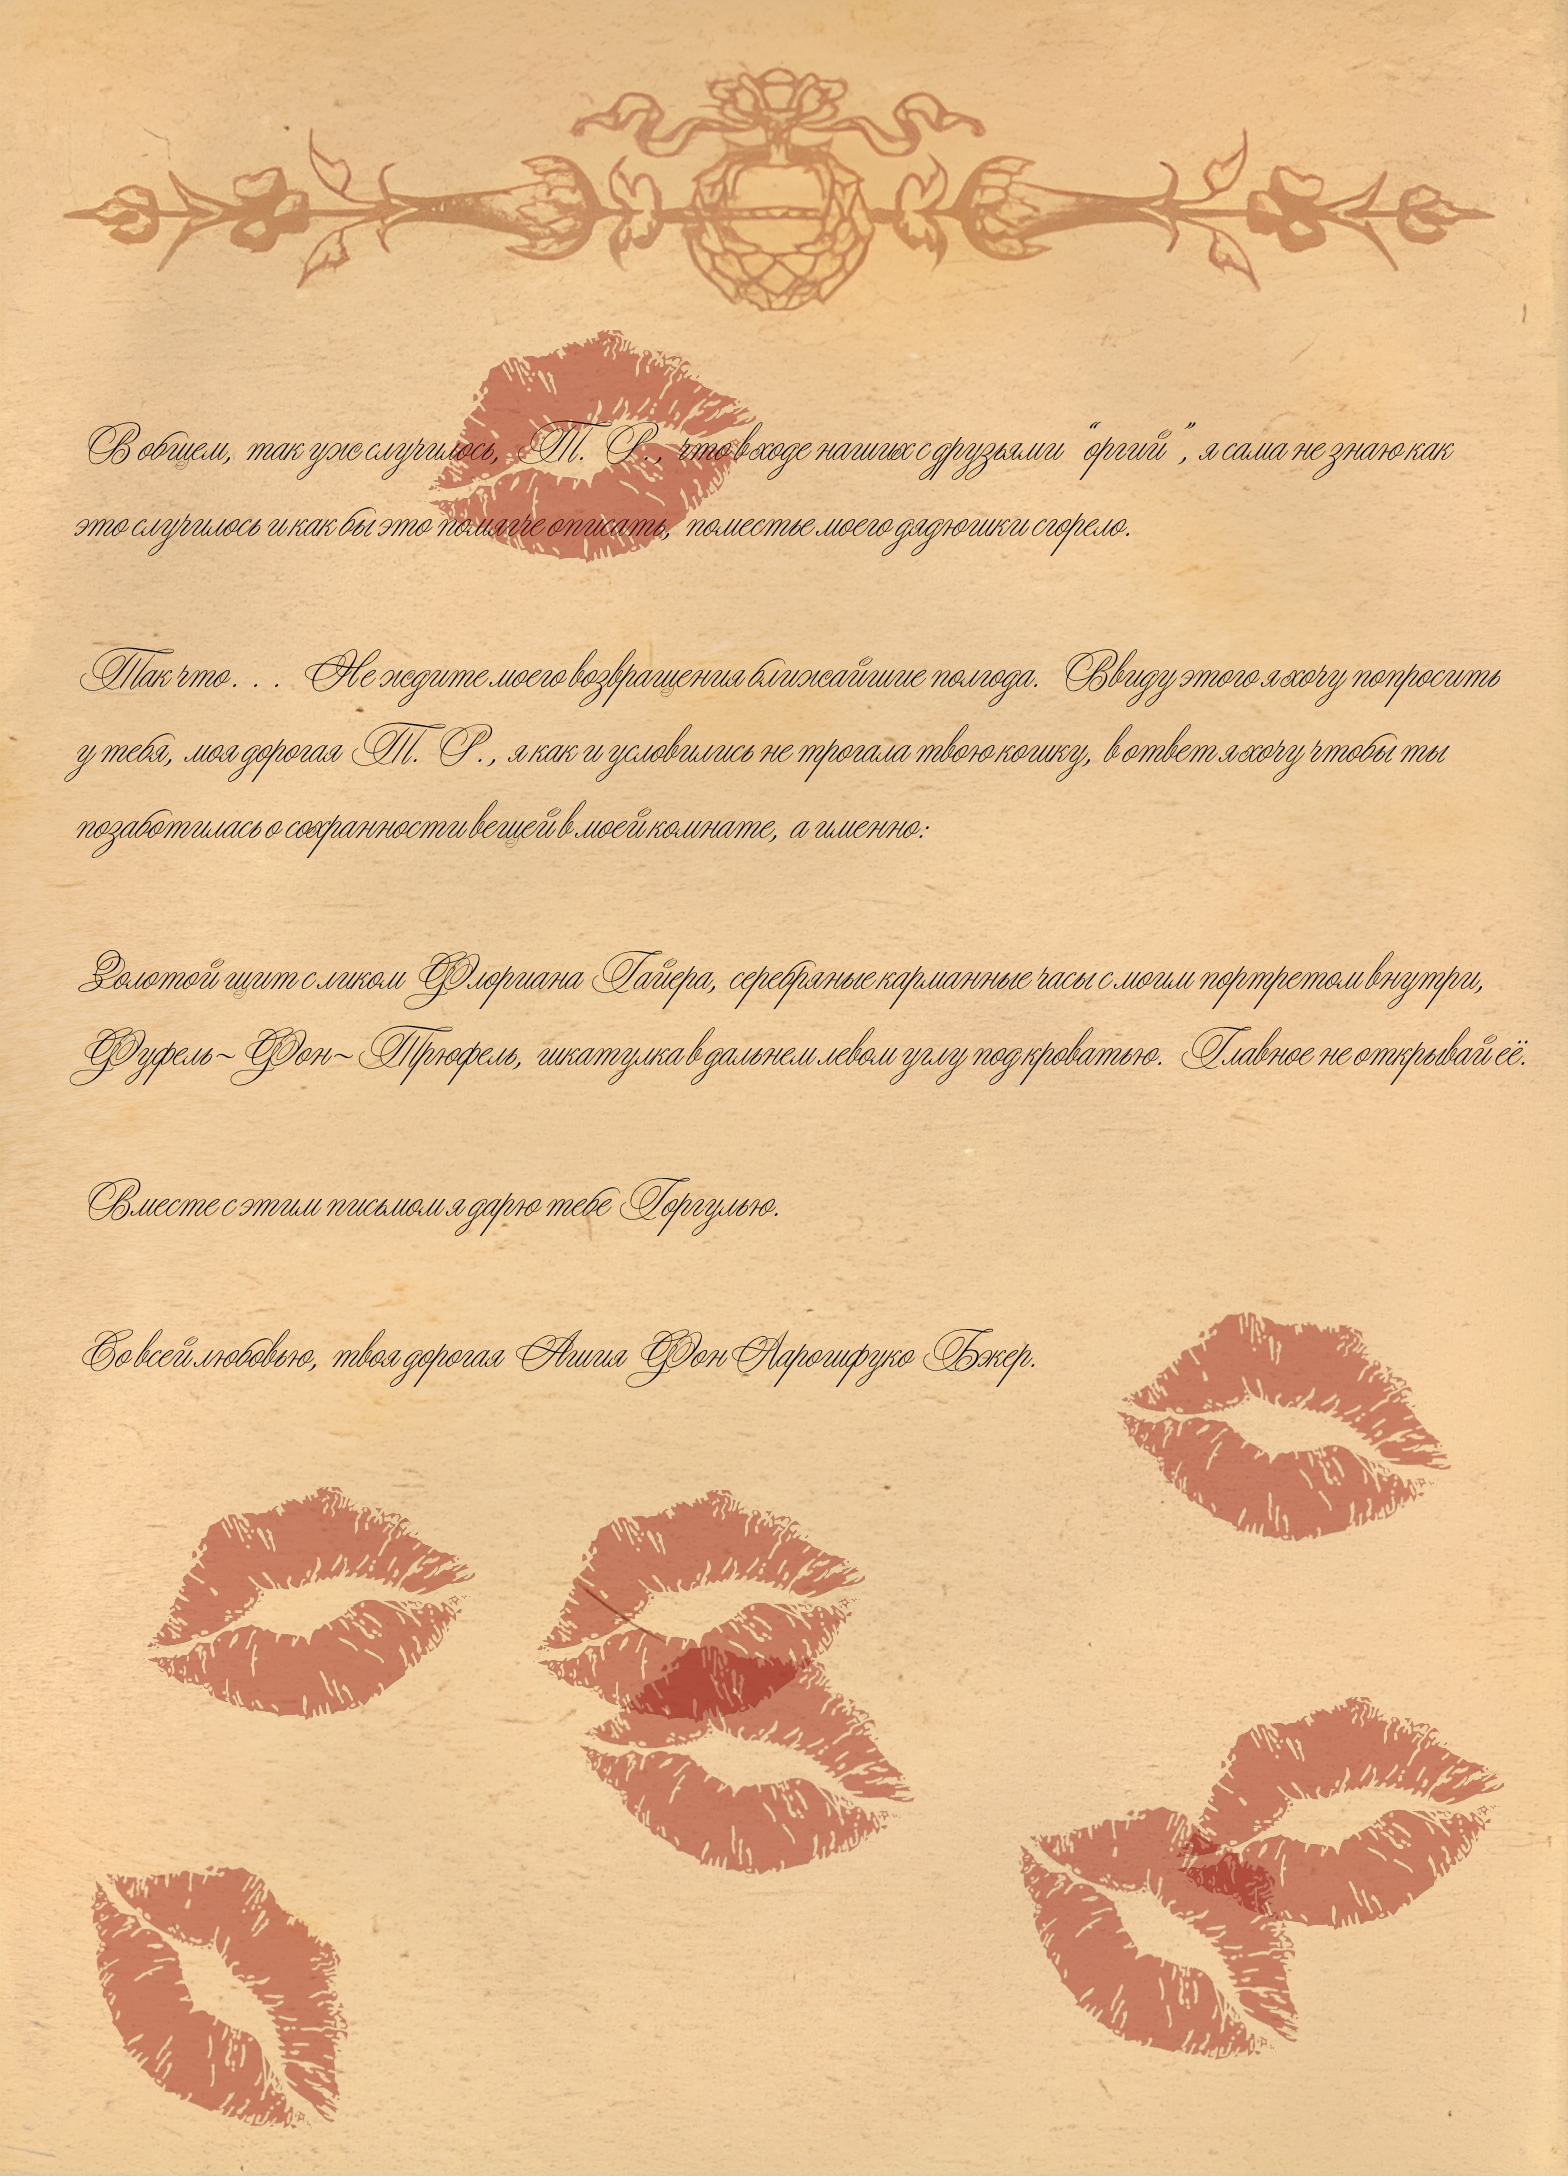 В общем, так уже случилось, Т. Р., что в ходе наших с друзьями "оргий", я сама не знаю как
это случилось и как бы это помягче описать, поместье моего дядюшки сгорело.
Так что... Не ждите моего возвращения ближайшие полгода. Ввиду этого я хочу попросить
у тебя, моя дорогая Т. Р., я как и условились не трогала твою кошку, в ответ я хочу чтобы ты
позаботилась о сохранности вещей в моей комнате, а именно:
Золотой щит с ликом Флориана Гайера, серебряные карманные часы с моим портретом внутри,
Фуфель~Фон~Трюфель, шкатулка в дальнем левом углу под кроватью. Главное не открывай её.
Вместе с этим письмом я дарю тебе Горгулью.
Со всей любовью, твоя дорогая Ашия Фон Ларошфуко Бжер.